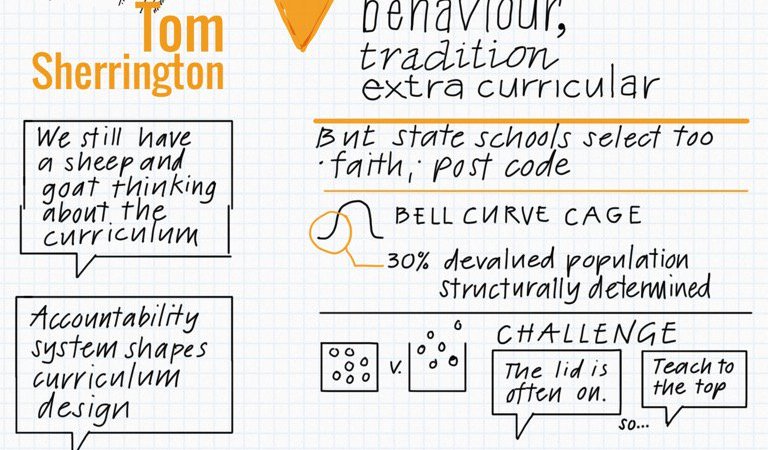 Tom
Sherrington
We still have
a sheep and
goat thinking
about the
curriculum
Accountability
system shapes
curriculum
design
behaviour,
tradition
extra curricular
But state schools select too
· faith, post code
BELL CURVE CAGE
30% devalued population
structurally determined
CHALLENGE
v.
The lid is
often on.
so...
Teach to
the top